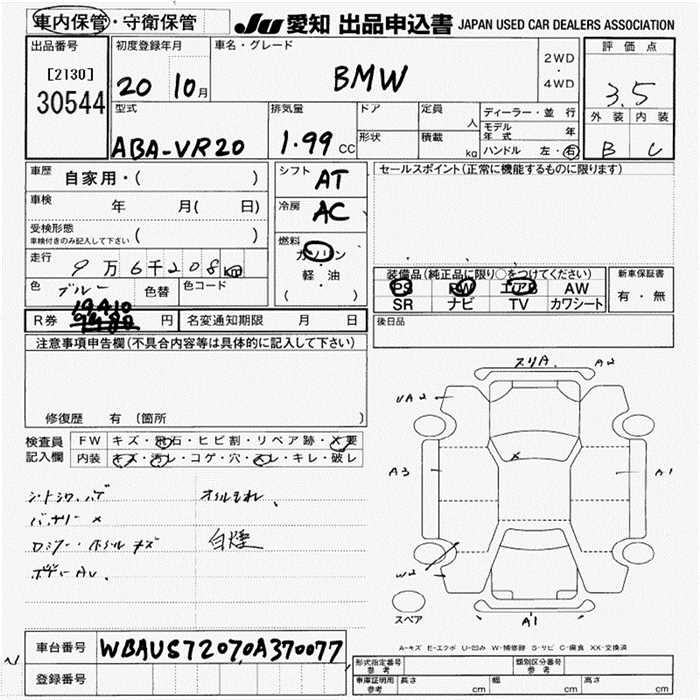 車内保管・守衛保管
JU 愛知 出品申込書 JAPAN USED CAR DEALERS ASSOCIATION
出品番号
[2130]
30544
初度登録年月
20 10月
車名・グレード
BMW
2WD
・
4WD
評価点
3.5
外装 内装
B C
型式
ABA-VR20
排気量
1.99 cc
ドア
形状
定員 人
積載 kg
ディーラー・並行
モデル年式 年
ハンドル 左・右
車歴 自家用・( )
車検 年 月( 日)
受検形態
車検付きのみ記入して下さい ( )
走行 9万6千208km
色 ブルー 色替 色コード
シフト AT
冷房 AC
燃料
ガソリン
・
軽・油
( )
セールスポイント(正常に機能するものに限ります)
装備品(純正品に限り○をつけてください)
PS PW エアB AW
SR ナビ TV カワシート
新車保証書
有・無
R券 19410 円
名変通知期限 月 日
後日品
注意事項申告欄(不具合内容等は具体的に記入して下さい)
修復歴 有 (箇所 )
検査員
記入欄
FW キズ・飛石・ヒビ割・リペア跡・X要
内装 キズ・汚レ・コゲ・穴・スレ・キレ・破レ
シートシワ、ハゲ オイルもれ、
バッテリー×
白煙
ボデーAU、
スリA. A2
UA2
A3
A1
W2
A1
スペア
A-キズ E-エクボ U-凹み W-補修跡 S-サビ C-腐食 XX-交換済
車台番号 WBAUS72070A370077
登録番号
形式指定番号
参考
類別区分番号
参考
車庫証明用
参考
長さ cm 幅 cm 高さ cm